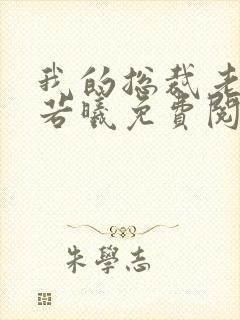 我的总裁老
若曦免費閱
朱學志